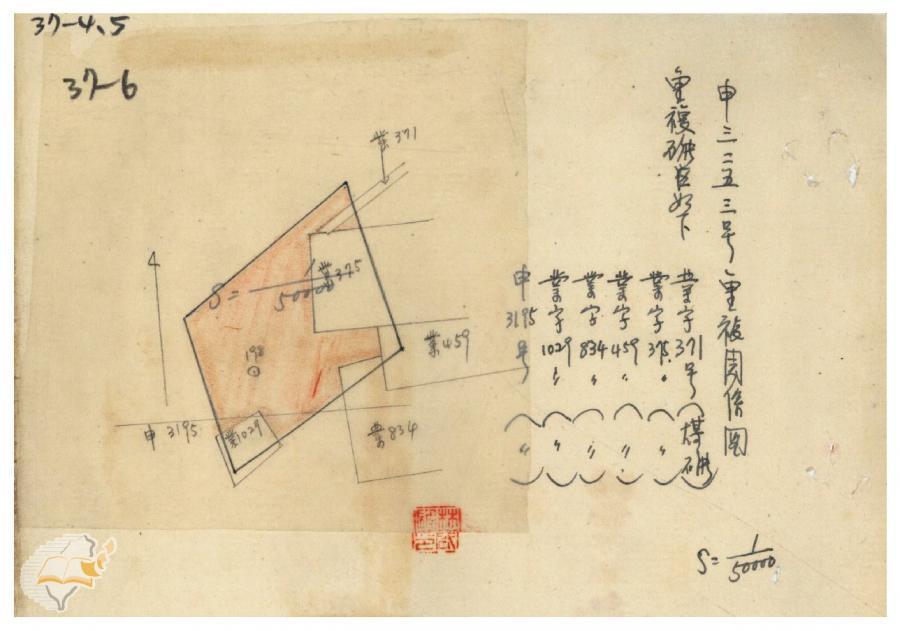 37-4、5
37-6
申三二五三号重複関係図
重複砿区如下
業字371号(煤砿)
業字375〃(〃)
業字459〃(〃)
業字834〃(〃)
業字1029〃(〃)
申3195号(〃)
業371
業375
S=1/50000
業459
198
申3195
業1029
業834
S=1/50000